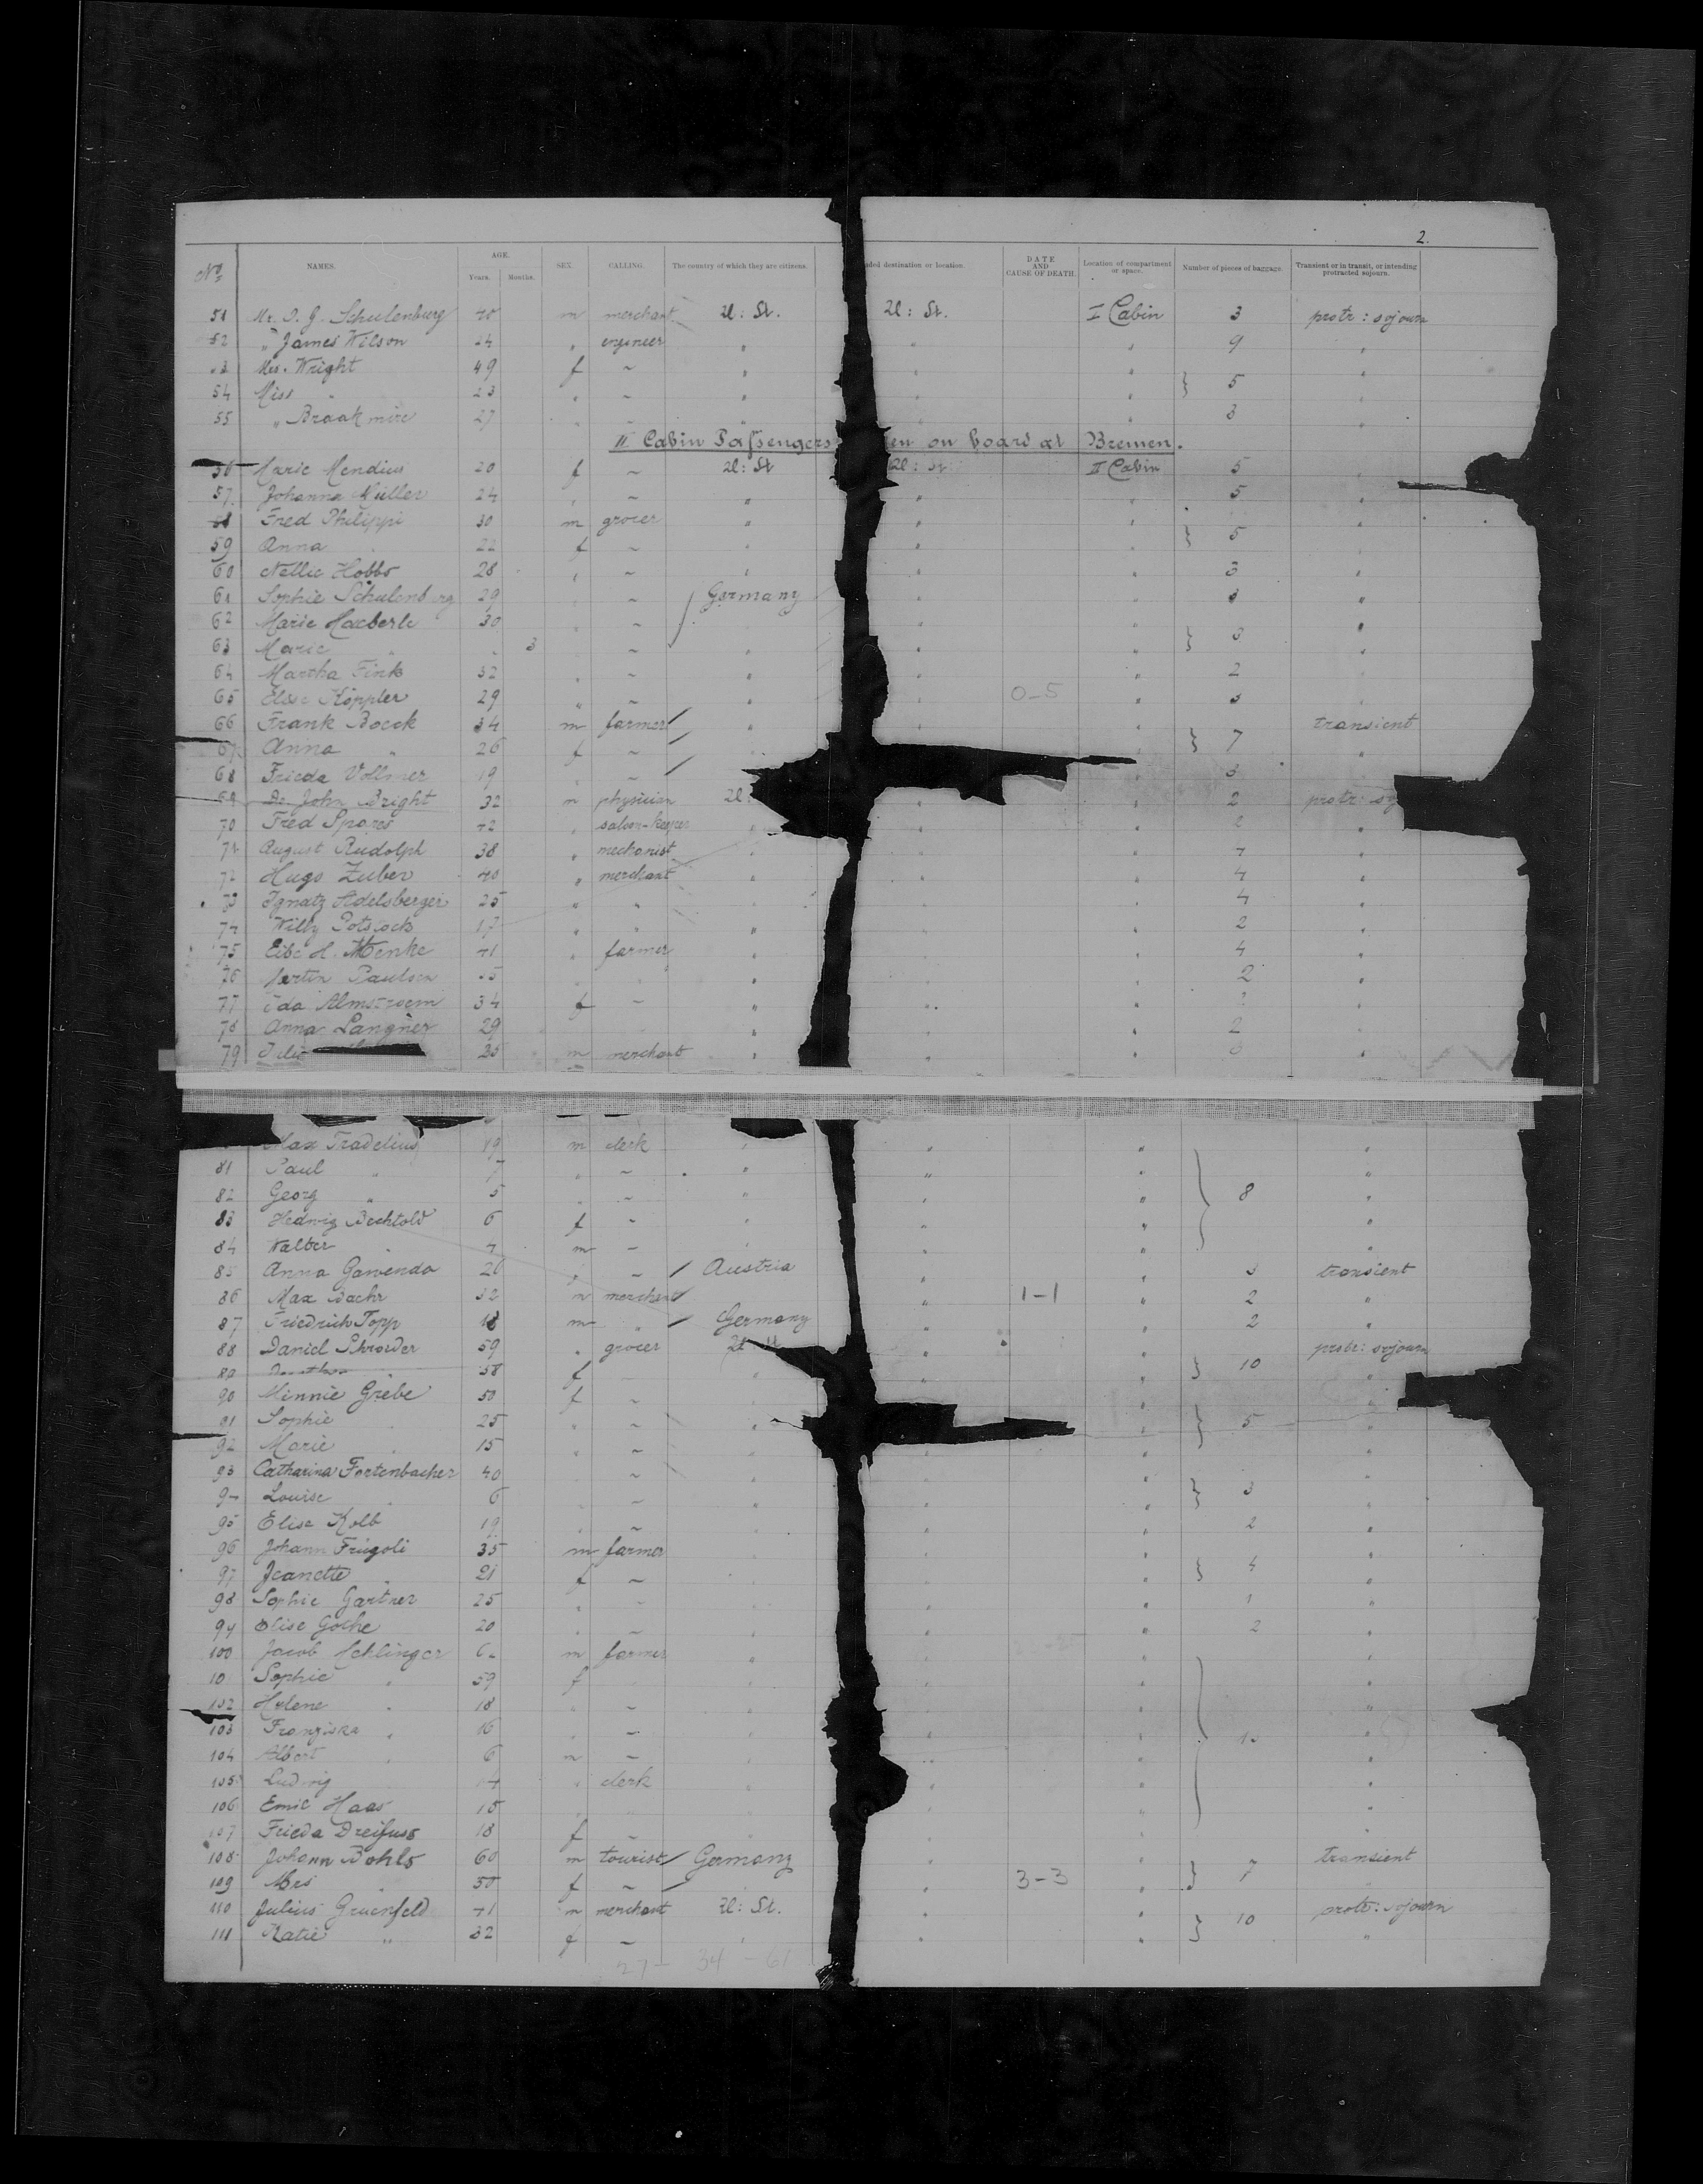 2.
No NAMES. AGE. Years. Months. SEX. CALLING. The country of which they are citizens. ded destination or location. DATE AND CAUSE OF DEATH. Location of compartment or space. Number of pieces of baggage. Transient or in transit, or intending protracted sojourn.
51 Mr. Schulenburg 40 m merchant U: St. U: St. I Cabin 3 protr: sojourn
52 " James Wilson engineer " " " 9 "
Mrs. Wright 49 f ~ " " " "
54 Miss " 23 " ~ " " " } 5 "
55 " Braakmire 27 " ~ " " " 3 "
II Cabin Passengers en on board at Bremen.
56 Marie Mendius 20 f ~ U: St U: St II Cabin 5 "
57 Johanna Müller 24 " ~ " " " 5 "
58 Fred Philippi 30 m grocer " " " "
59 Anna " 22 f ~ " " " } 5 "
60 Nellie Hobbs 28 " ~ " " " 3 "
61 Sophie Schulenburg 29 " ~ Germany " " "
62 Marie Haeberle 30 " ~ " " "
63 Marie " " 3 " ~ " " " } 3 "
64 Martha Fink 32 " ~ " " " 2 "
65 Else Köppler 29 " ~ " " 0-5 " 3 "
66 Frank Bocek 34 m farmer " " " transient
67 Anna " 26 f ~ " " } 7 "
68 Frieda Vollmer 19 " ~ " 3
69 Dr John Bright 32 m physician U: " " 2 protr: so
70 Fred Spores 42 " saloon-keeper " " 2 "
71 August Rudolph 38 " mechanist " " " 4 "
72 Hugo Zuber 40 " merchant " " " 4 "
73 Ignatz Adelsberger 25 " " " " " 4 "
74 Willy 17 " " " " " 2 "
75 Eibe H. Menke 41 " farmer " " " 4 "
76 Paulsen " " " " " 2 "
77 Ida Almstroem 34 f ~ " " " "
78 Anna Langner 29 " " " " 2 "
79 35 m merchant " " " "
Max Tradelius 19 m clerk " " " "
81 Paul " 7 " ~ " " " "
82 Georg " 5 " ~ " " " } 8 "
83 Hedwig Bechtold 6 f ~ " " " "
84 Walter " 4 m ~ " " " "
85 Anna Gawenda " ~ Austria " " 3 transient
86 Max Bachr 32 m merchant " 1-1 " 2 "
87 Friedrich Topp 18 m " Germany " " 2 "
88 Daniel Schroeder 59 " grocer U: St " " protr: sojourn
89 58 f " " " } 10 "
90 Minnie Grebe 50 f ~ " " " "
91 Sophie " 25 " ~ " " } 5 "
92 Marie " 15 " ~ " " " "
93 Catharina Fortenbacher 40 " ~ " " " "
94 Louise " 6 " ~ " " " } 3 "
95 Elise Kolb 19 " ~ " " " 2 "
96 Johann Frugoli 35 m farmer " " " "
97 Jeanette " 21 f ~ " " " } 4 "
98 Sophie Gartner 25 " ~ " " " 1 "
99 Elise Gothe 20 " ~ " " " 2 "
100 Jacob Schlinger m farmer " " " "
10 Sophie " 59 f " " " "
102 Helene " 18 " ~ " " " "
103 Franziska " 16 " ~ " " " "
104 Albert " 6 m ~ " " " "
105 Ludwig " " clerk " " " "
106 Emil Haas " " " " " "
107 Frieda Dreifuss 18 f ~ " " " "
108 Johann Bohls 60 m tourist Germany " " transient
109 Mrs " 50 f ~ " " 3-3 " } 7 "
110 Julius Gruenfeld 41 m merchant U: St. " " protr: sojourn
111 Katie " 32 f ~ " " " } 10 "
27- 34 - 61